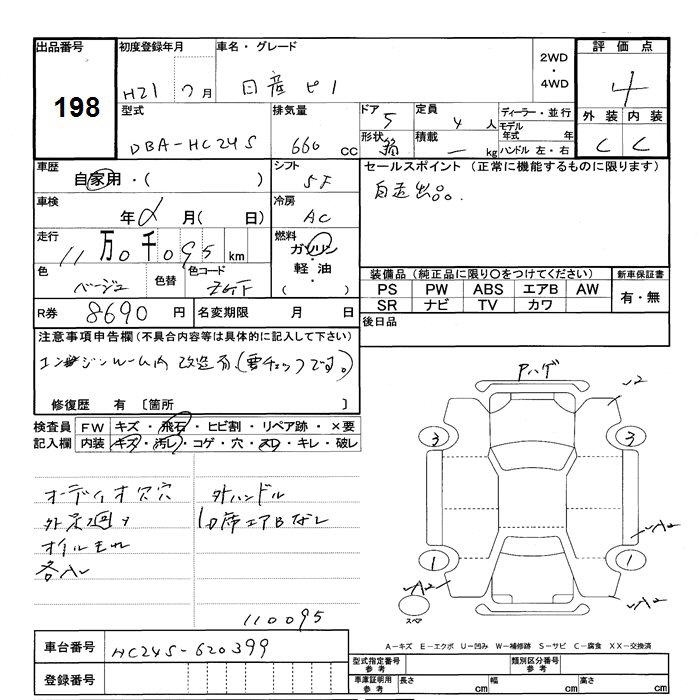 出品番号
198
初度登録年月
H21 7月
車名・グレード
日産 ピノ
2WD
・
4WD
評価点
4
外装 内装
C C
型式
DBA-HC24S
排気量
660 cc
ドア
5
形状
定員
4 人
積載
― kg
ディーラー・並行
モデル年式 年式
ハンドル 左・右
車歴
自家用・( )
シフト
5F
車検
年 月( 日)
冷房
AC
走行
11万0千095 km
燃料
ガソリン
軽油
( )
色
ベージュ
色替
色コード
R券 8690円
名変期限 月 日
セールスポイント(正常に機能するものに限ります)
自走出品。
装備品(純正品に限り〇をつけてください)
PS PW ABS エアB AW
SR ナビ TV カワ
新車保証書
有・無
後日品
注意事項申告欄(不具合内容等は具体的に記入して下さい)
エンジンルーム内 改造有(要チェックです。)
修復歴 有 〔箇所 〕
検査員記入欄
FW キズ・飛石・ヒビ割・リペア跡・×要
内装 キズ・汚レ・コゲ・穴・スレ・キレ・破レ
オーディオ欠穴
外足廻サ
オイルもれ
各A
外ハンドル
D席エアBなし
110095
Pハゲ
3
3
1
1
スペア
A-キズ E-エクボ U-凹み W-補修跡 S-サビ C-腐食 XX-交換済
車台番号
HC24S-620399
登録番号
型式指定番号 参考
類別区分番号 参考
車庫証明用 参考
長さ cm
幅 cm
高さ cm